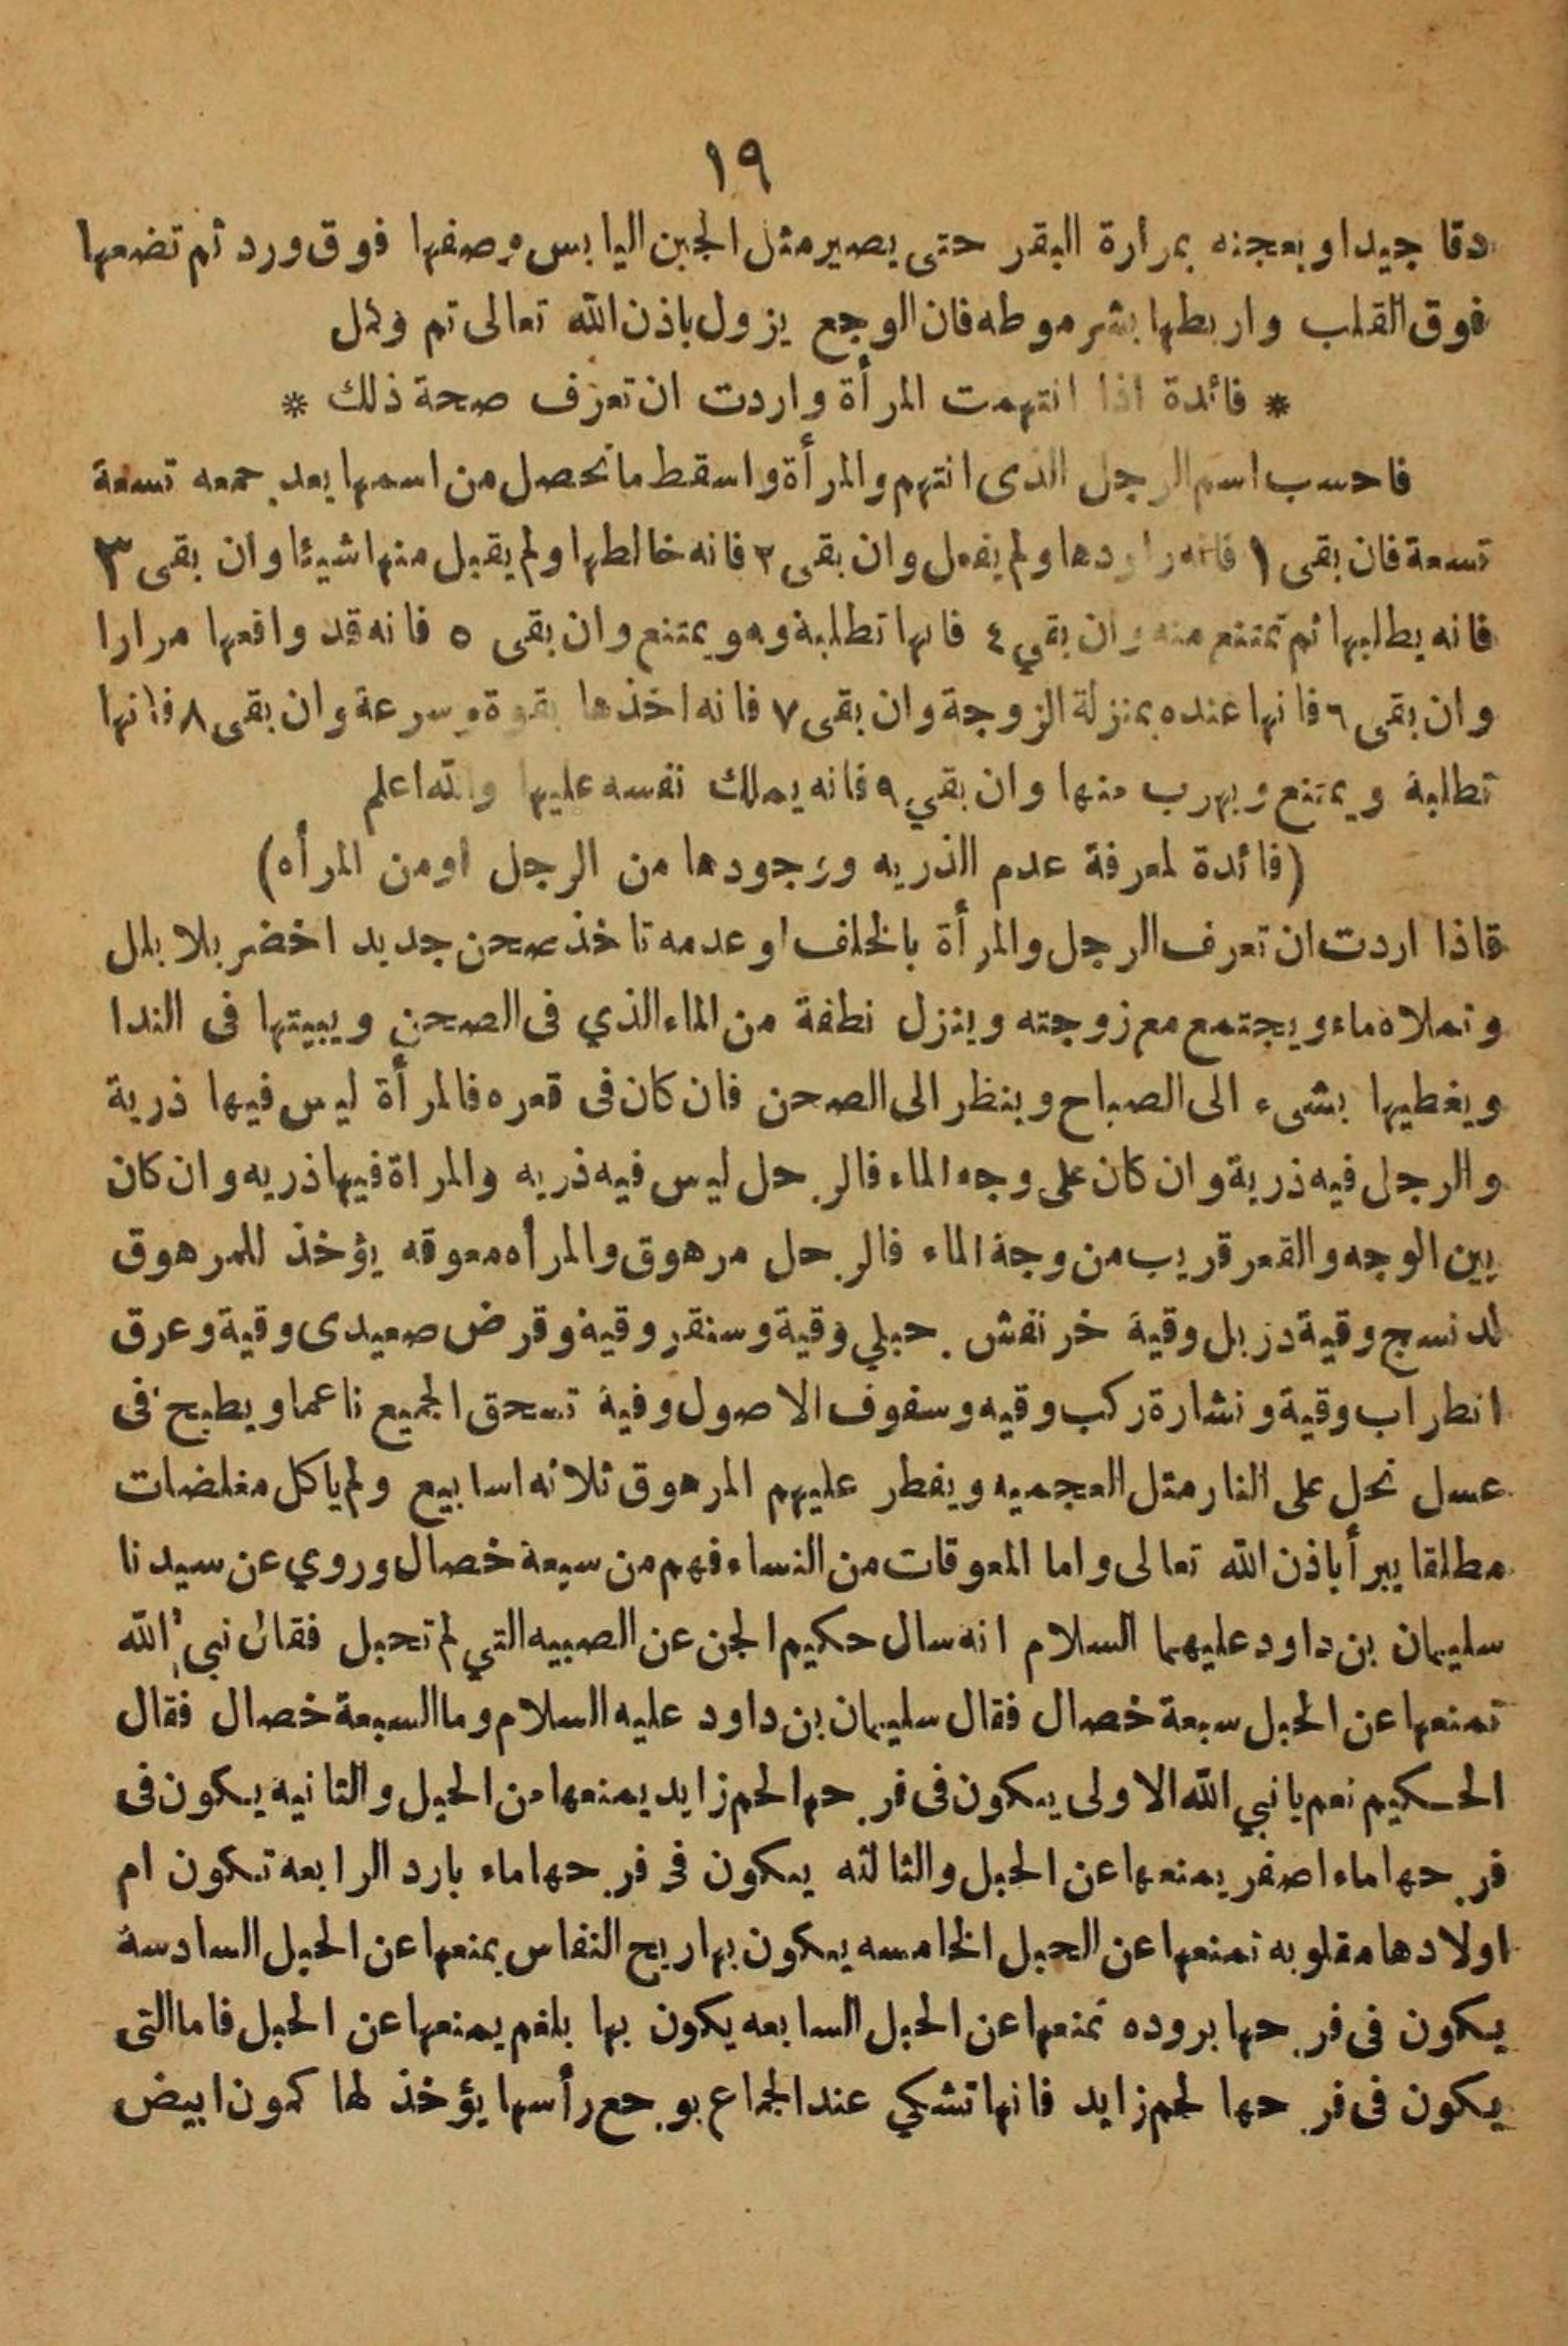 ١٩
دقا جيدا وبعجنه بمرارة البقر حتى يصير مثل الجبن اليابس وصفها فوق ورد ثم تضعها
فوق القلب واربطها بشرموطه فان الوجع يزول باذن الله تعالى تم وكمل
* فائدة اذا انتهمت المرأة واردت ان تعرف صحة ذلك *
فاحسب اسم الرجل الذى انتهم والمرأة واسقط ما تحصل من اسمها بعد جمعه تسعة
تسعة فان بقى ١ فانه راودها ولم يفعل وان بقى ٢ فانه خالطها ولم يقبل منها شيئا وان بقى ٣
فانه يطلبها ثم تمتنع منه وان بقي ٤ فانها تطلبة وهو يمتنع وان بقى ٥ فانه قد واقعها مرارا
وان بقى ٦ فانها عنده بمنزلة الزوجة وان بقى ٧ فانه اخذها بقوة وسرعة وان بقى ٨ فانها
تطلبة ويمتنع ويهرب منها وان بقي ٩ فانه يملك نفسه عليها والله اعلم
(فائدة لمعرفة عدم الذريه ووجودها من الرجل اومن المرأه)
فاذا اردت ان تعرف الرجل والمرأة بالخلف او عدمه تاخذ صحن جديد اخضر بلا بلل
وتملاه ماء ويجتمع مع زوجته وينزل نطفة من الماء الذي فى الصحن ويبيتها فى الندا
ويغطيها بشىء الى الصباح وينظر الى الصحن فان كان فى قعره فالمرأة ليس فيها ذرية
والرجل فيه ذرية وان كان على وجه الماء فالرجل ليس فيه ذريه والمراة فيها ذريه وان كان
بين الوجه والقعر قريب من وجة الماء فالرجل مرهوق والمرأه معوقه يؤخذ للمرهوق
لدنسج وقية دزبل وقية خرنفش جبلي وقية وسنقر وقية وقرض صعيدى وقية وعرق
انطراب وقية ونشارة ركب وقيه وسفوف الاصول وقية تسحق الجميع ناعما ويطبخ فى
عسل نحل على النار مثل العجميه ويفطر عليهم المرهوق ثلاثه اسابيع ولم ياكل مغلضات
مطلقا يبرأ باذن الله تعالى واما المعوقات من النساء فهم من سبعة خصال وروي عن سيدنا
سليمان بن داود عليهما السلام انه سال حكيم الجن عن الصبيه التي لم تحبل فقال نبي الله
تمنعها عن الحبل سبعة خصال فقال سليمان بن داود عليه السلام وما السبعة خصال فقال
الحكيم نعم يا نبي الله الاولى يكون فى فرجها لحم زايد يمنعها من الحبل والثانيه يكون فى
فرجها ماء اصفر يمنعها عن الحبل والثالثه يكون فى فرجها ماء بارد الرابعه تكون ام
اولادها مقلوبه تمنعها عن الحبل الخامسه يكون بها ريح النفاس يمنعها عن الحبل السادسة
يكون فى فرجها بروده تمنعها عن الحبل السابعه يكون بها بلغم يمنعها عن الحبل فاما التى
يكون فى فرجها لحم زايد فانها تشكي عند الجماع بوجع رأسها يؤخذ لها كمون ابيض